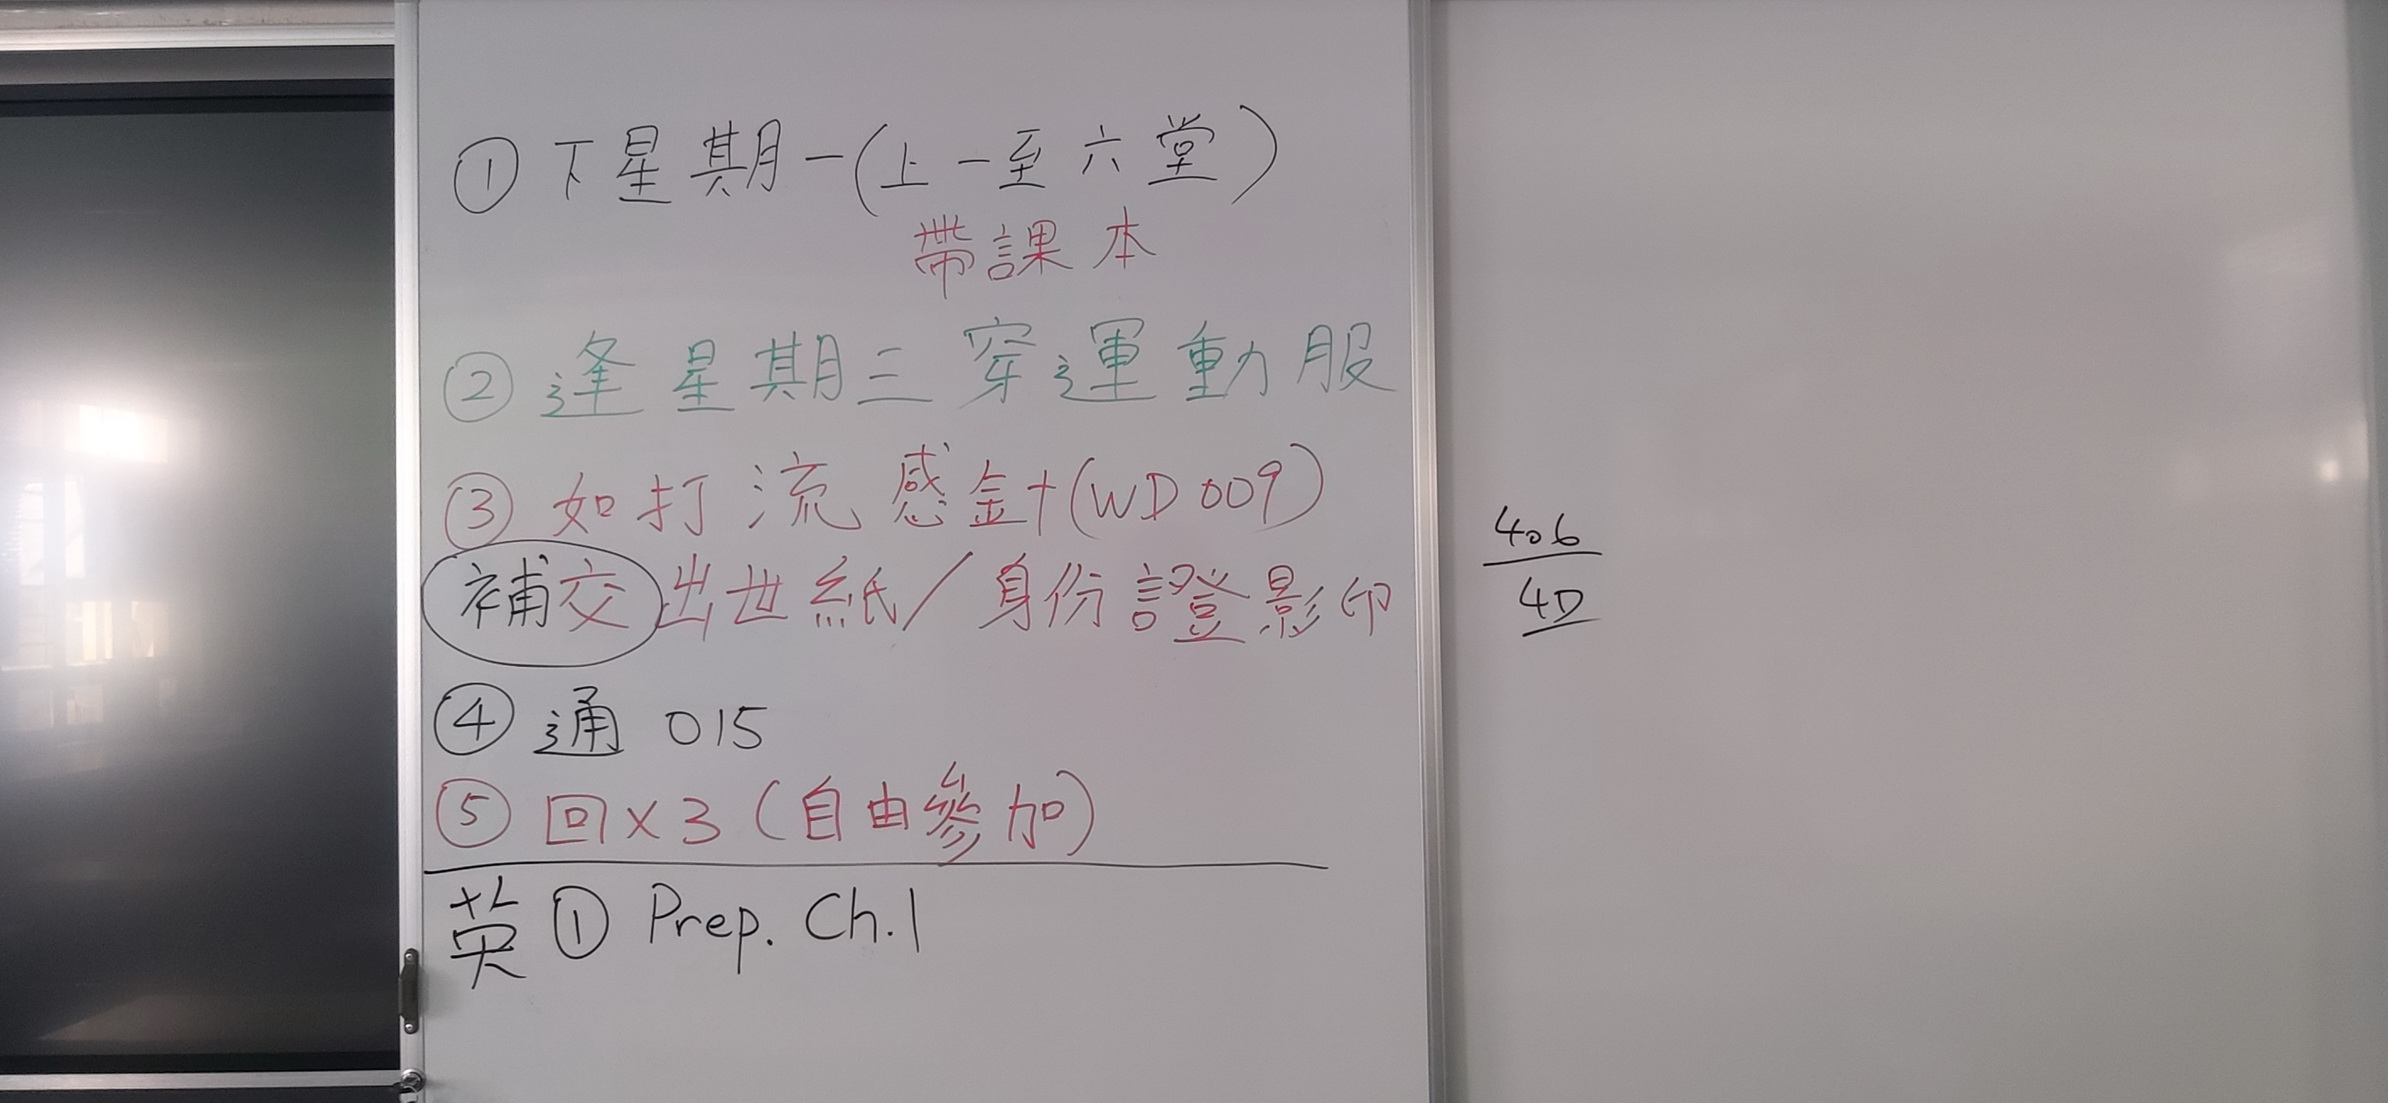 ① 下星期一(上一至六堂)
帶課本
② 逢星期三穿運動服
③ 如打流感針(WD009)
補交出世紙/身份證影印
④ 通 015
⑤ 回×3(自由參加)
英 ① Prep. Ch.1
406
4D